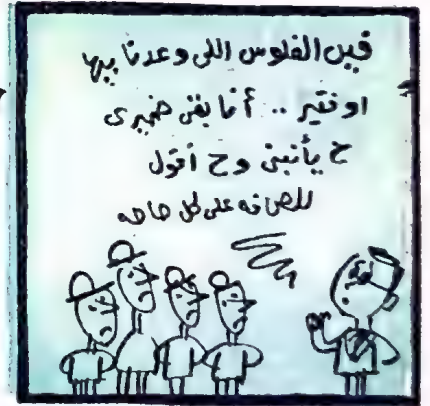 فين الفلوس اللى وعدنا بيها
اوفتير .. أنا بقى ضميرى
ح يأنبنى وح اقول
للصحافه على كل حاجه